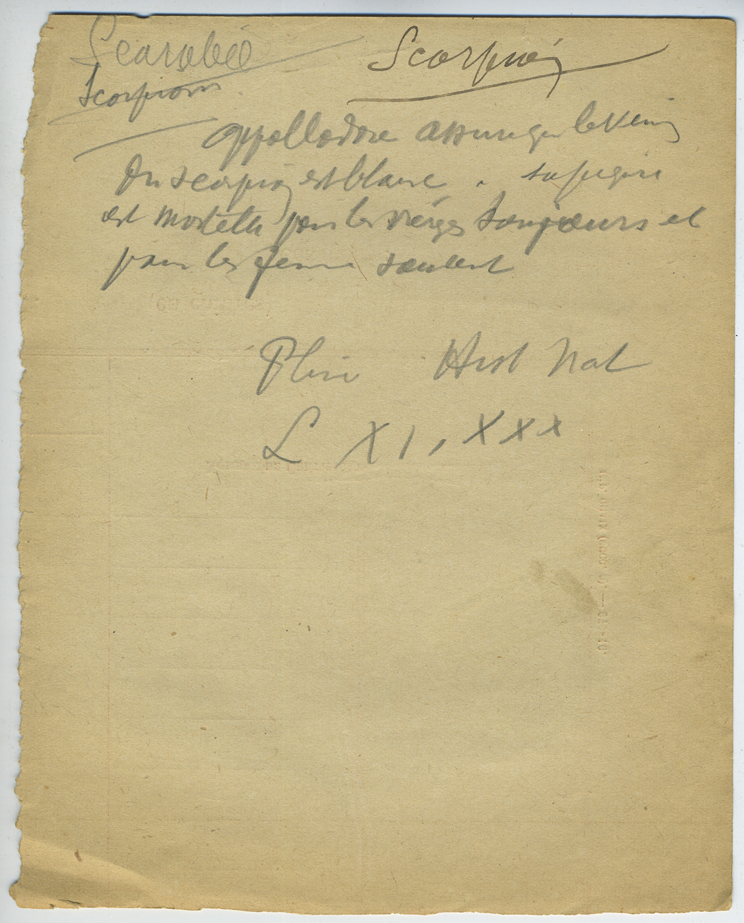 Scarabée
Scorpions
Scorpion
Appollodore assure que le venin
du scorpion est blanc. sa piqure
est mortelle pour les vierges toujours et
pour les femmes souvent
Plin Hist Nat
L XI, XXX